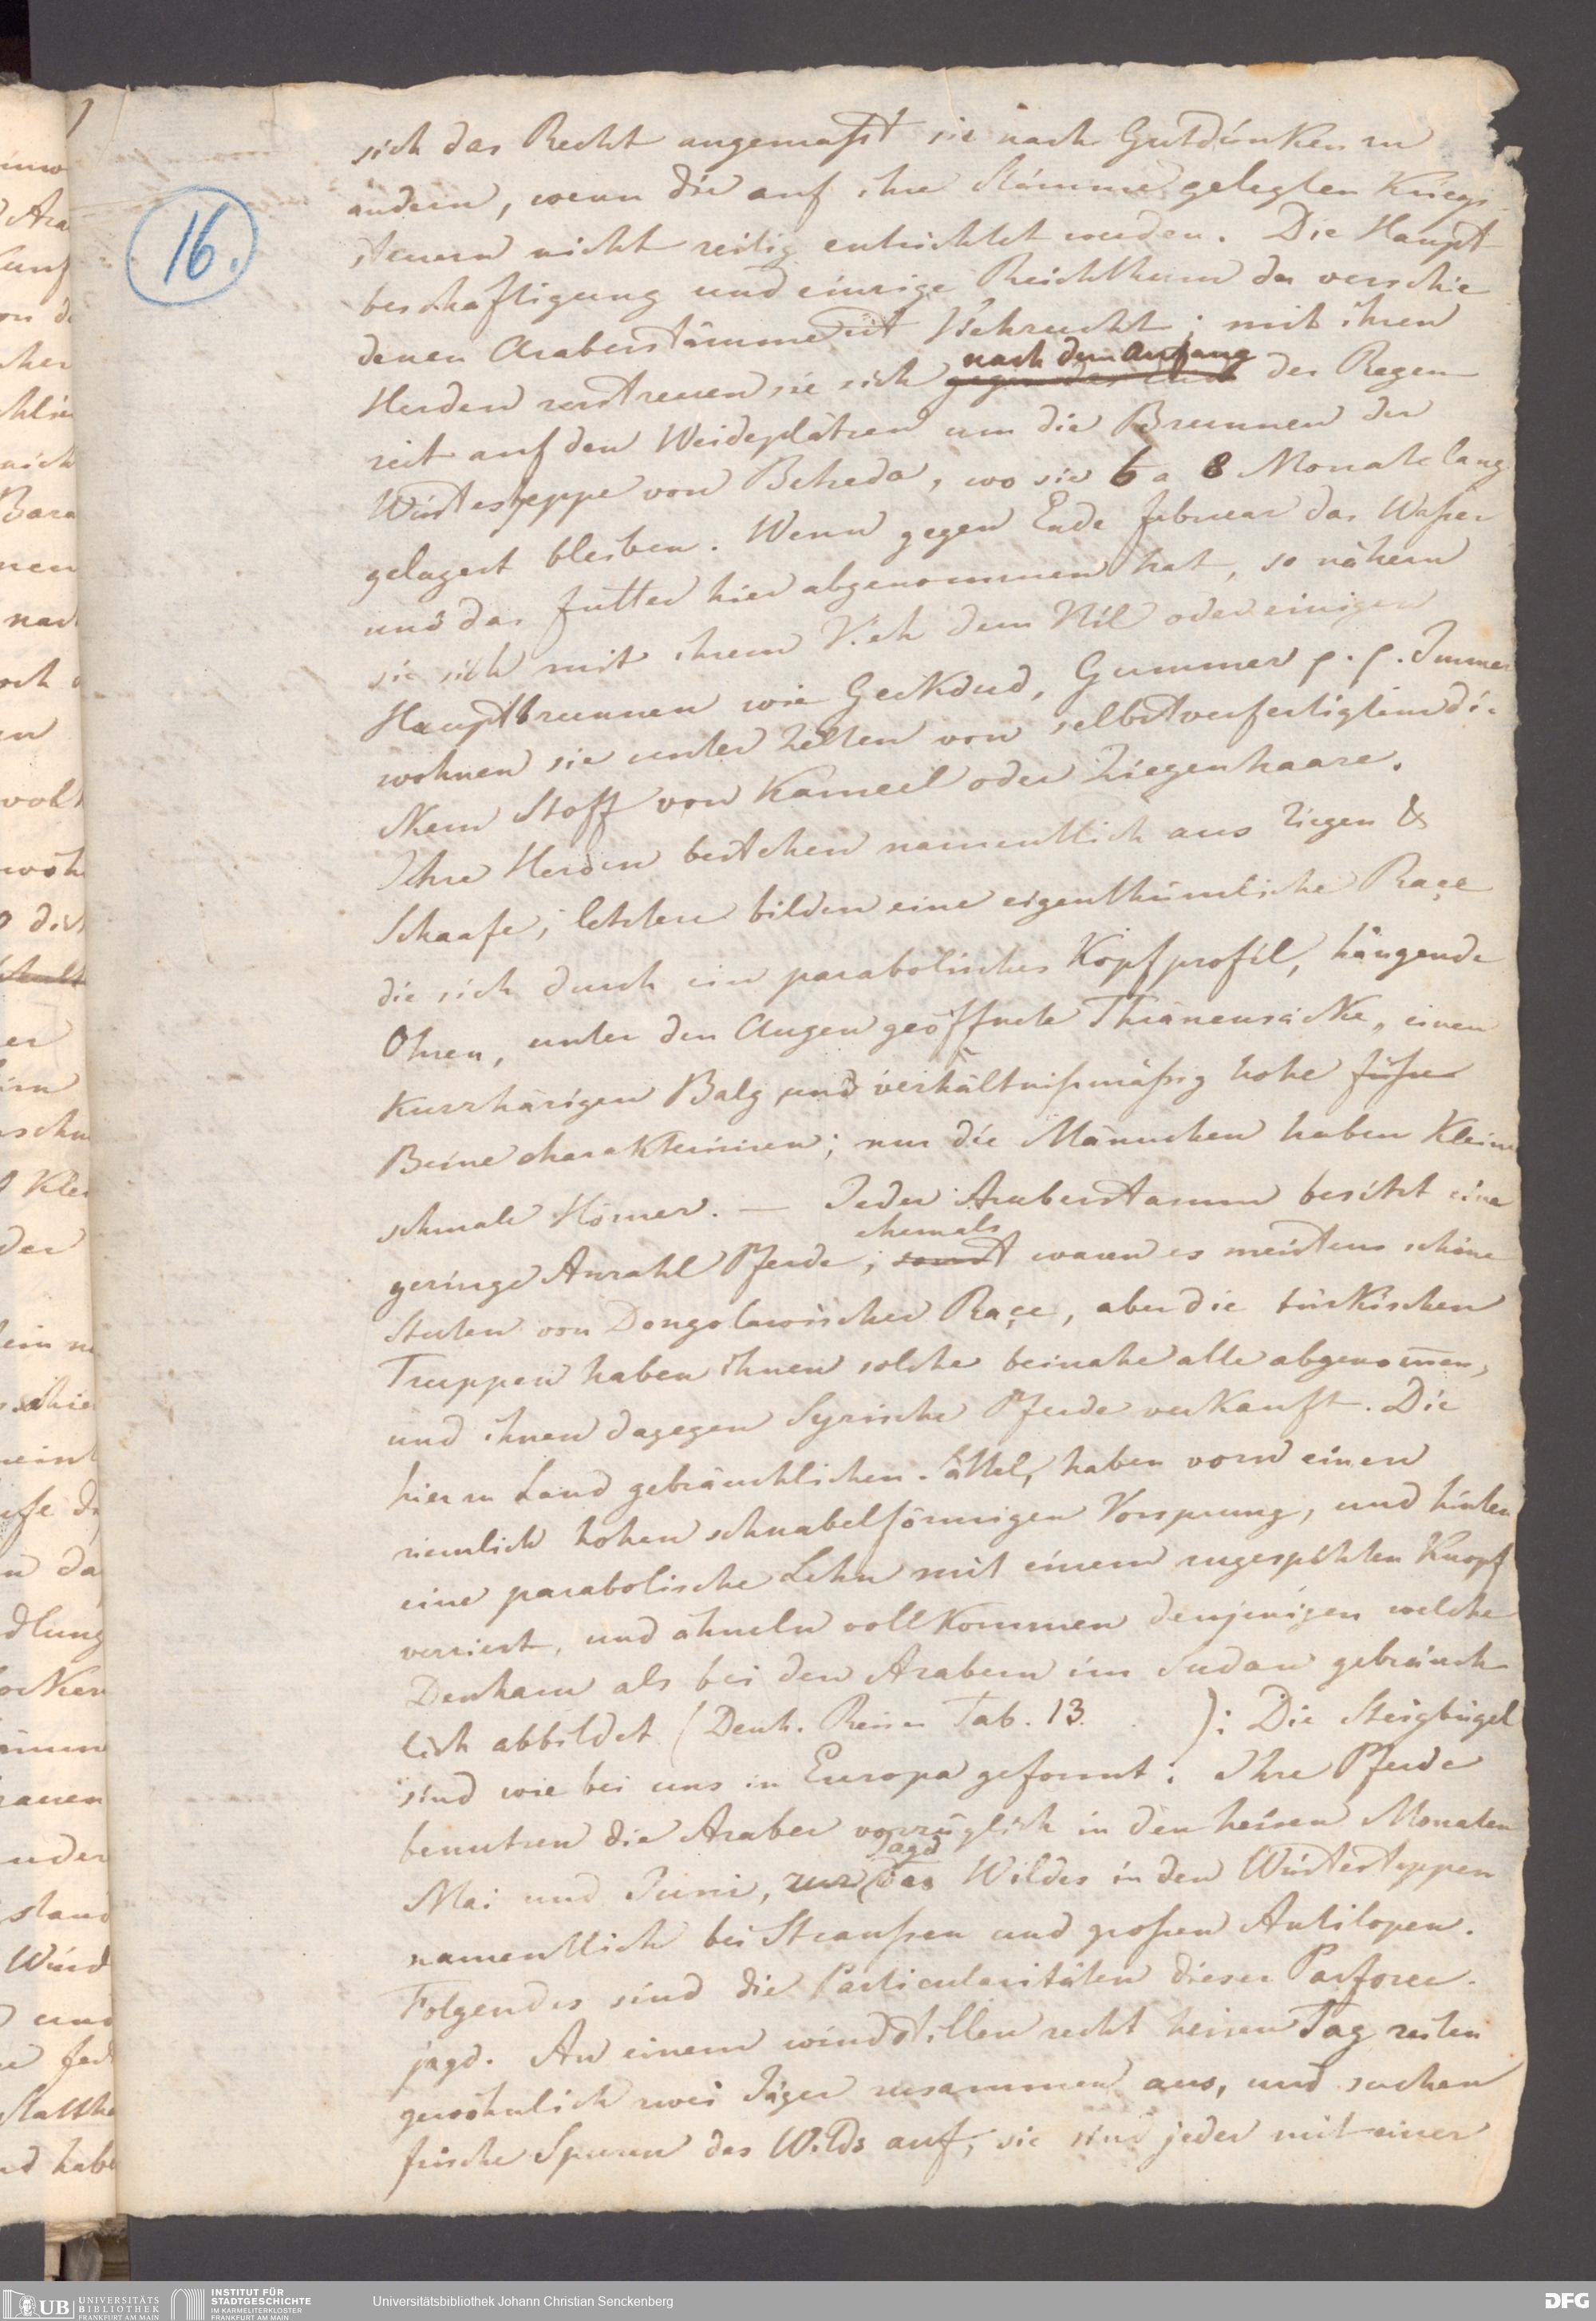 16.
sich das Recht angemaßt sie nach Gutdünken zu
ändern, wenn die auf ihre Stämme gelegten Kriegs
steuern nicht zeitig entrichtet werden. Die Haupt
beschäftigung und einzige Reichthum der verschie
denen Araberstämme ist Viehzucht; mit ihren
nach dem Anfang
Herden zerstreuen sie sich gegen das Ende der Regen
zeit auf den Weideplätzen um die Brunnen der
Wüstesteppe von Beheda, wo sie 6 a 8 Monate lang
gelagert bleiben. Wenn gegen Ende februar das Waßer
und das futter hier abgenommen hat, so nähern
sie sich mit ihrem Vieh dem Nil oder einigen
Hauptbrunnen wie Geckdud, Gummer p. p. Immer
wohnen sie unter Zelten von selbstverfertigtem di-
ckem Stoff von Kameel oder Ziegenhaare.
Ihre Herden bestehen namentlich aus Ziegen &
Schaafe; letztere bilden eine eigenthümliche Raçe
die sich durch ein parabolisches Kopfprofil, hängende
Ohren, unter den Augen geöffnete Thränensäcke, einen
kurzhärigen Balg und verhältnißmäßig hohe füße
Beine charakterisiren; nur die Männchen haben kleine
schmale Hörner. — Jeder Araberstamm besitzt eine
ehemals
geringe Anzahl Pferde; sonst waren es meistens schöne
Stuten von Dongolawischer Raçe, aber die türkischen
Truppen haben ihnen solche beinahe alle abgenom̄en,
und ihnen dagegen Syrische Pferde verkauft. Die
hier zu Land gebräuchlichen Sättel, haben vorn einen
ziemlich hohen schnabelförmigen Vorsprung, und hinten
eine parabolische Lehn mit einem zugespitzten Knopf
verziert, und ähneln vollkommen denjenigen welche
Denham als bei den Arabern im Sudan gebräuch
lich abbildet (Denh. Reisen Tab. 13. ): Die Steigbügel
sind wie bei uns in Europa geformt. Ihre Pferde
benutzen die Araber vorzüglich in den heisen Monaten
Jagd
Mai und Juni, zur des Wildes in den Wüstesteppen
namentlich bei Straußen und großen Antilopen.
Folgendes sind die Particularitäten dieser Parforce-
jagd. An einem windstillen recht heisen Tag reiten
gewöhnlich zwei Jäger zusammen aus, und suchen
frische Spuren des Wilds auf, sie sind jeder mit einer
UB UNIVERSITÄTS
BIBLIOTHEK
FRANKFURT AM MAIN
INSTITUT FÜR
STADTGESCHICHTE
IM KARMELITERKLOSTER
FRANKFURT AM MAIN
Universitätsbibliothek Johann Christian Senckenberg
DFG